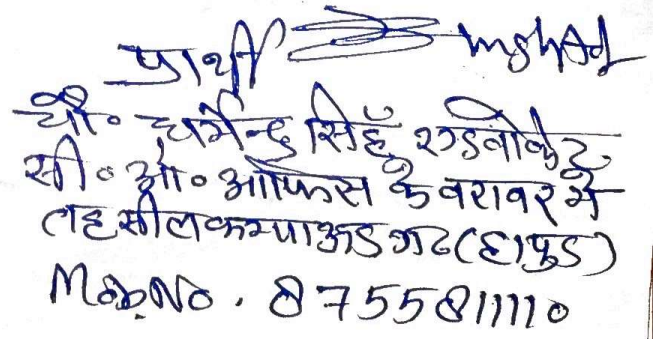 प्रार्थी
चौ० धर्मेन्द्र सिहँ एडवोकेट
सी० ओ० ऑफिस के बराबर में
तहसील कम्पाऊड गढ (हापुड)
Mob.No. 8755811110